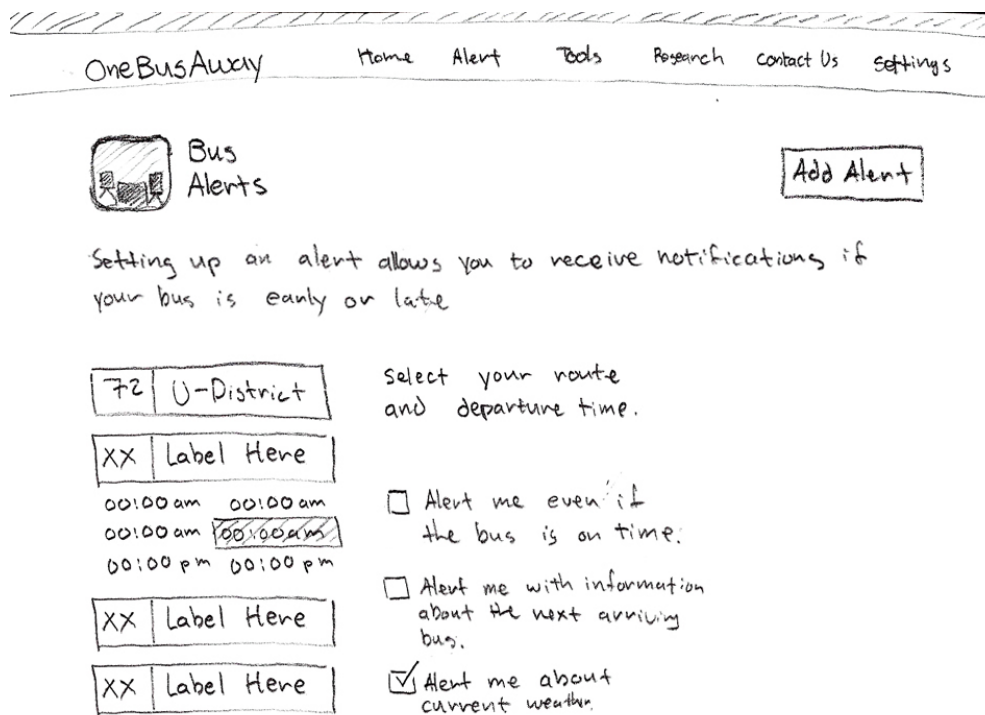 OneBusAway Home Alert Tools Research Contact Us Settings
Bus
Alerts
Add Alert
Setting up an alert allows you to receive notifications if
your bus is early or late
72 U-District
XX Label Here
00:00 am 00:00 am
00:00 am 00:00 am
00:00 pm 00:00 pm
XX Label Here
XX Label Here
Select your route
and departure time.
Alert me even if
the bus is on time.
Alert me with information
about the next arriving
bus.
Alert me about
current weather.